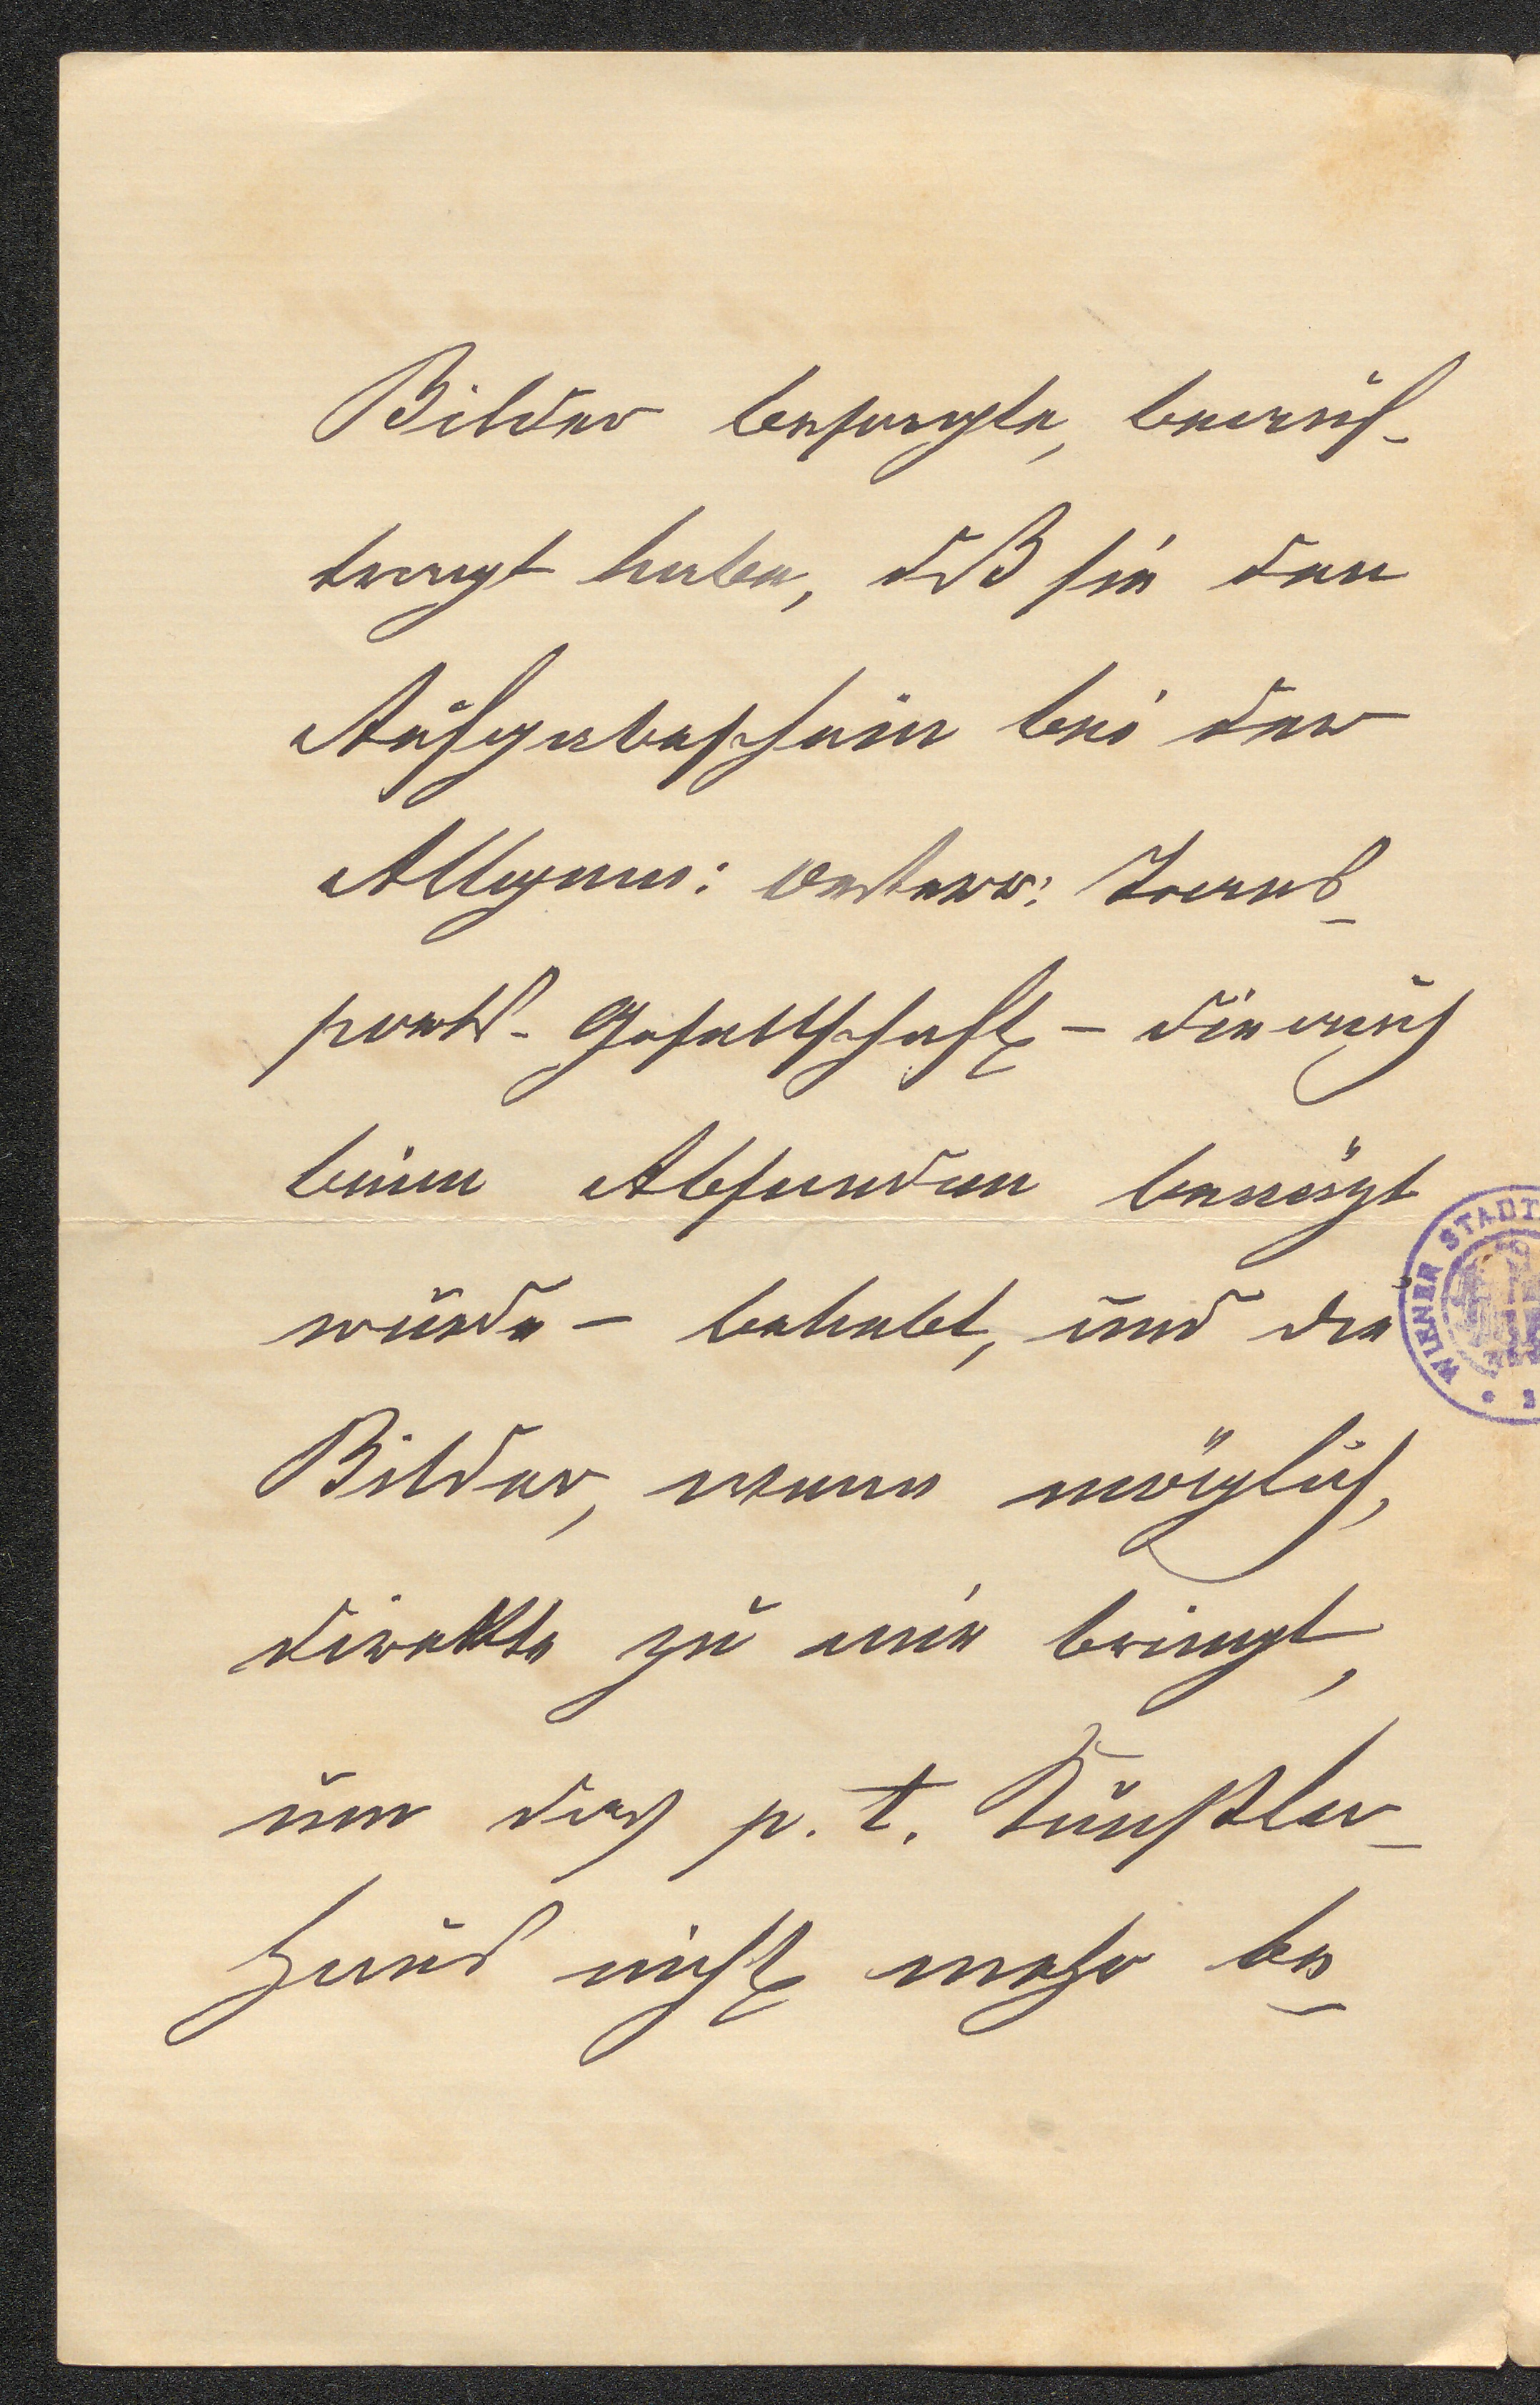 Bilder besorgte, beauf-
tragt habe, dß sie den
Aufgabeschein bei der
Allgem: Oesterr: Trans-
ports-Gesellschaft – die auch
beim Absenden benüzt
würde – behebt, und die
Bilder, wenn möglich,
direkte zu mir bringt,
um das p. t. Künstler-
haus nicht mehr be-
WIENER STADT